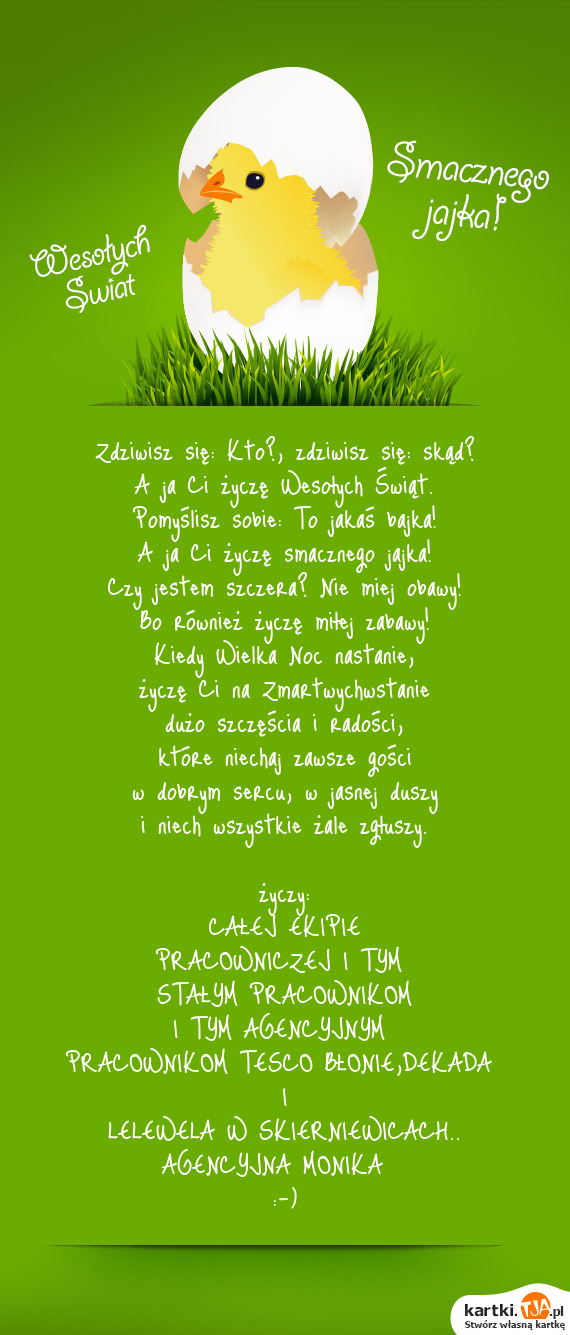 Smacznego
jajka!
Wesołych
Świąt
Zdziwisz się: Kto?, zdziwisz się: skąd?
A ja Ci życzę Wesołych Świąt.
Pomyślisz sobie: To jakaś bajka!
A ja Ci życzę smacznego jajka!
Czy jestem szczera? Nie miej obawy!
Bo również życzę miłej zabawy!
Kiedy Wielka Noc nastanie,
życzę Ci na Zmartwychwstanie
dużo szczęścia i radości,
które niechaj zawsze gości
w dobrym sercu, w jasnej duszy
i niech wszystkie żale zgłuszy.
życzy:
CAŁEJ EKIPIE
PRACOWNICZEJ I TYM
STAŁYM PRACOWNIKOM
I TYM AGENCYJNYM
PRACOWNIKOM TESCO BŁONIE,DEKADA
I
LELEWELA W SKIERNIEWICACH..
AGENCYJNA MONIKA
:-)
kartki.TJA.pl
Stwórz własną kartkę